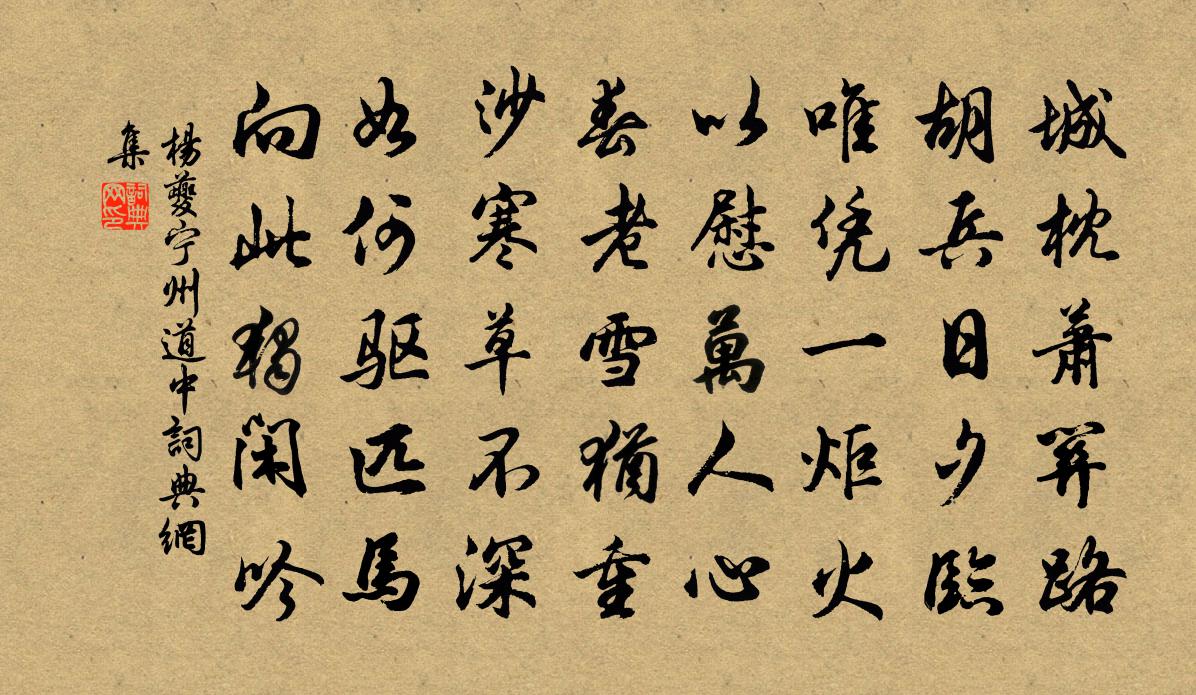 城枕萧關路
胡兵日夕臨
唯凭一炬火
以慰萬人心
春老雪猶重
沙寒草不深
如何驱匹馬
向此獨閑吟
楊夔宁州道中詞典網
集
詞典
网印